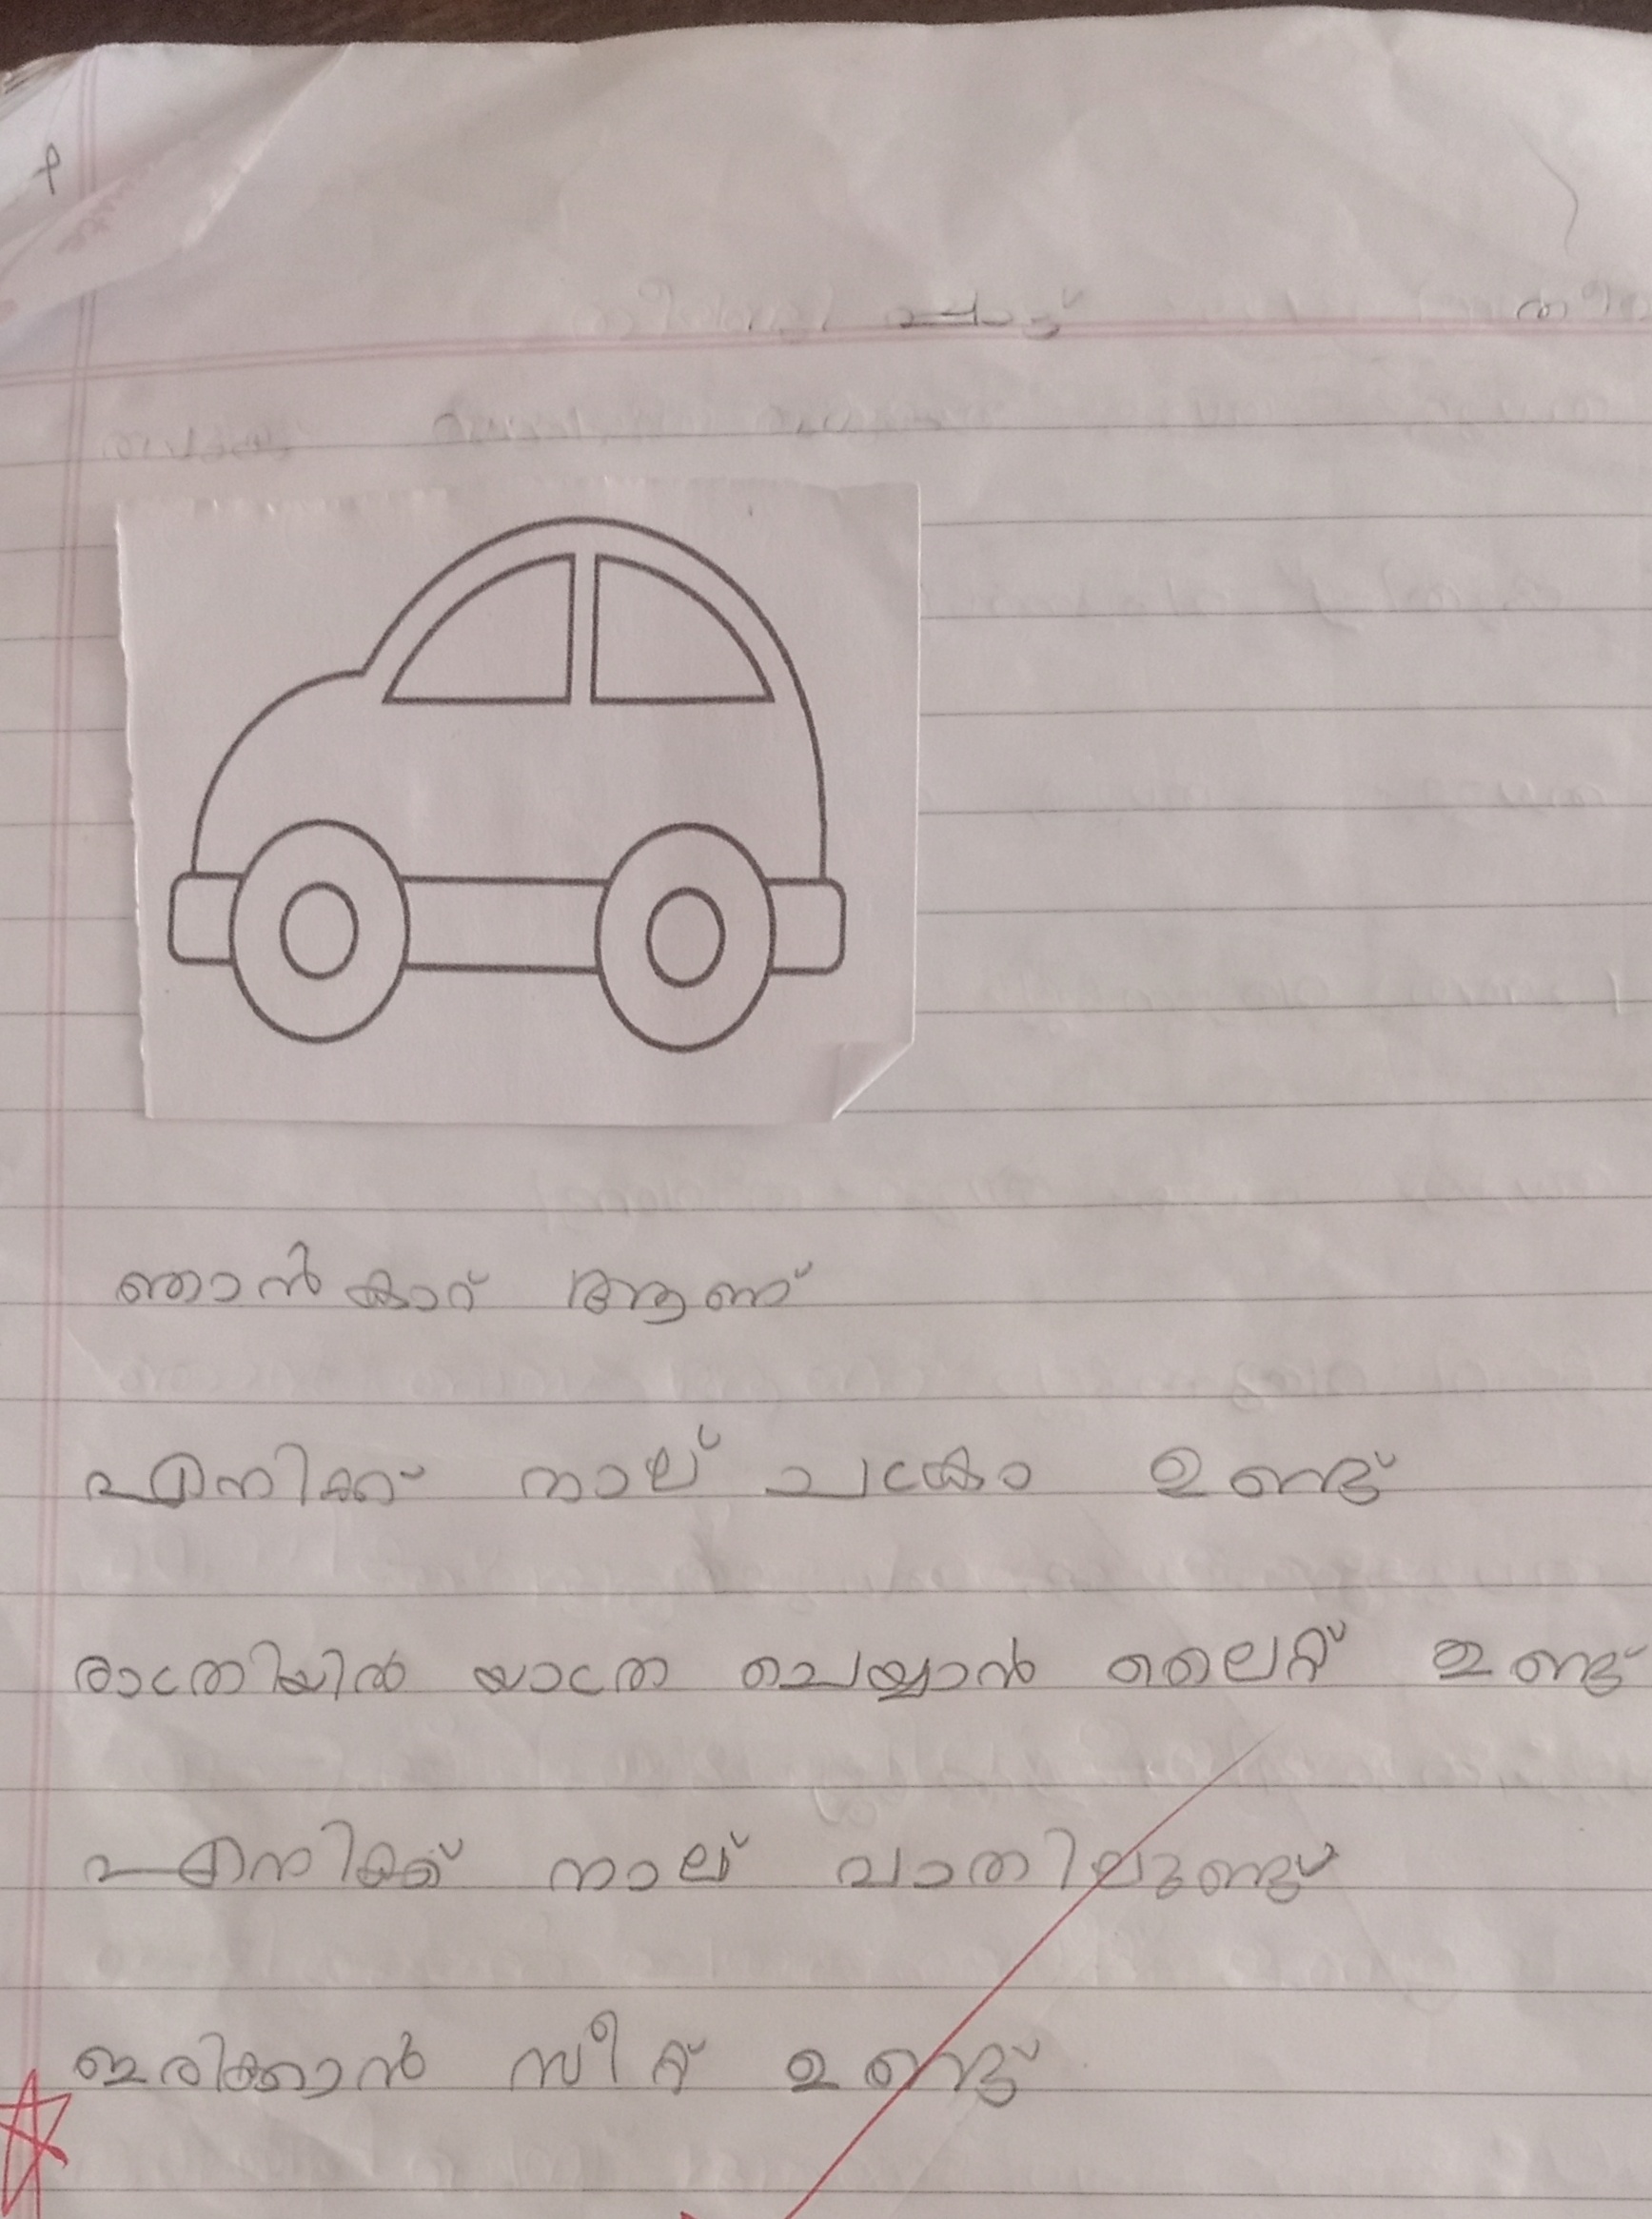 ഞാൻ കാറ് ആണ്
എനിക്ക് നാല് ചക്രം ഉണ്ട്
രാത്രിയിൽ യാത്ര ചെയ്യാൻ ലൈറ്റ് ഉണ്ട്
എനിക്ക് നാല് വാതിലുണ്ട്
ഇരിക്കാൻ സീറ്റ് ഉണ്ട്